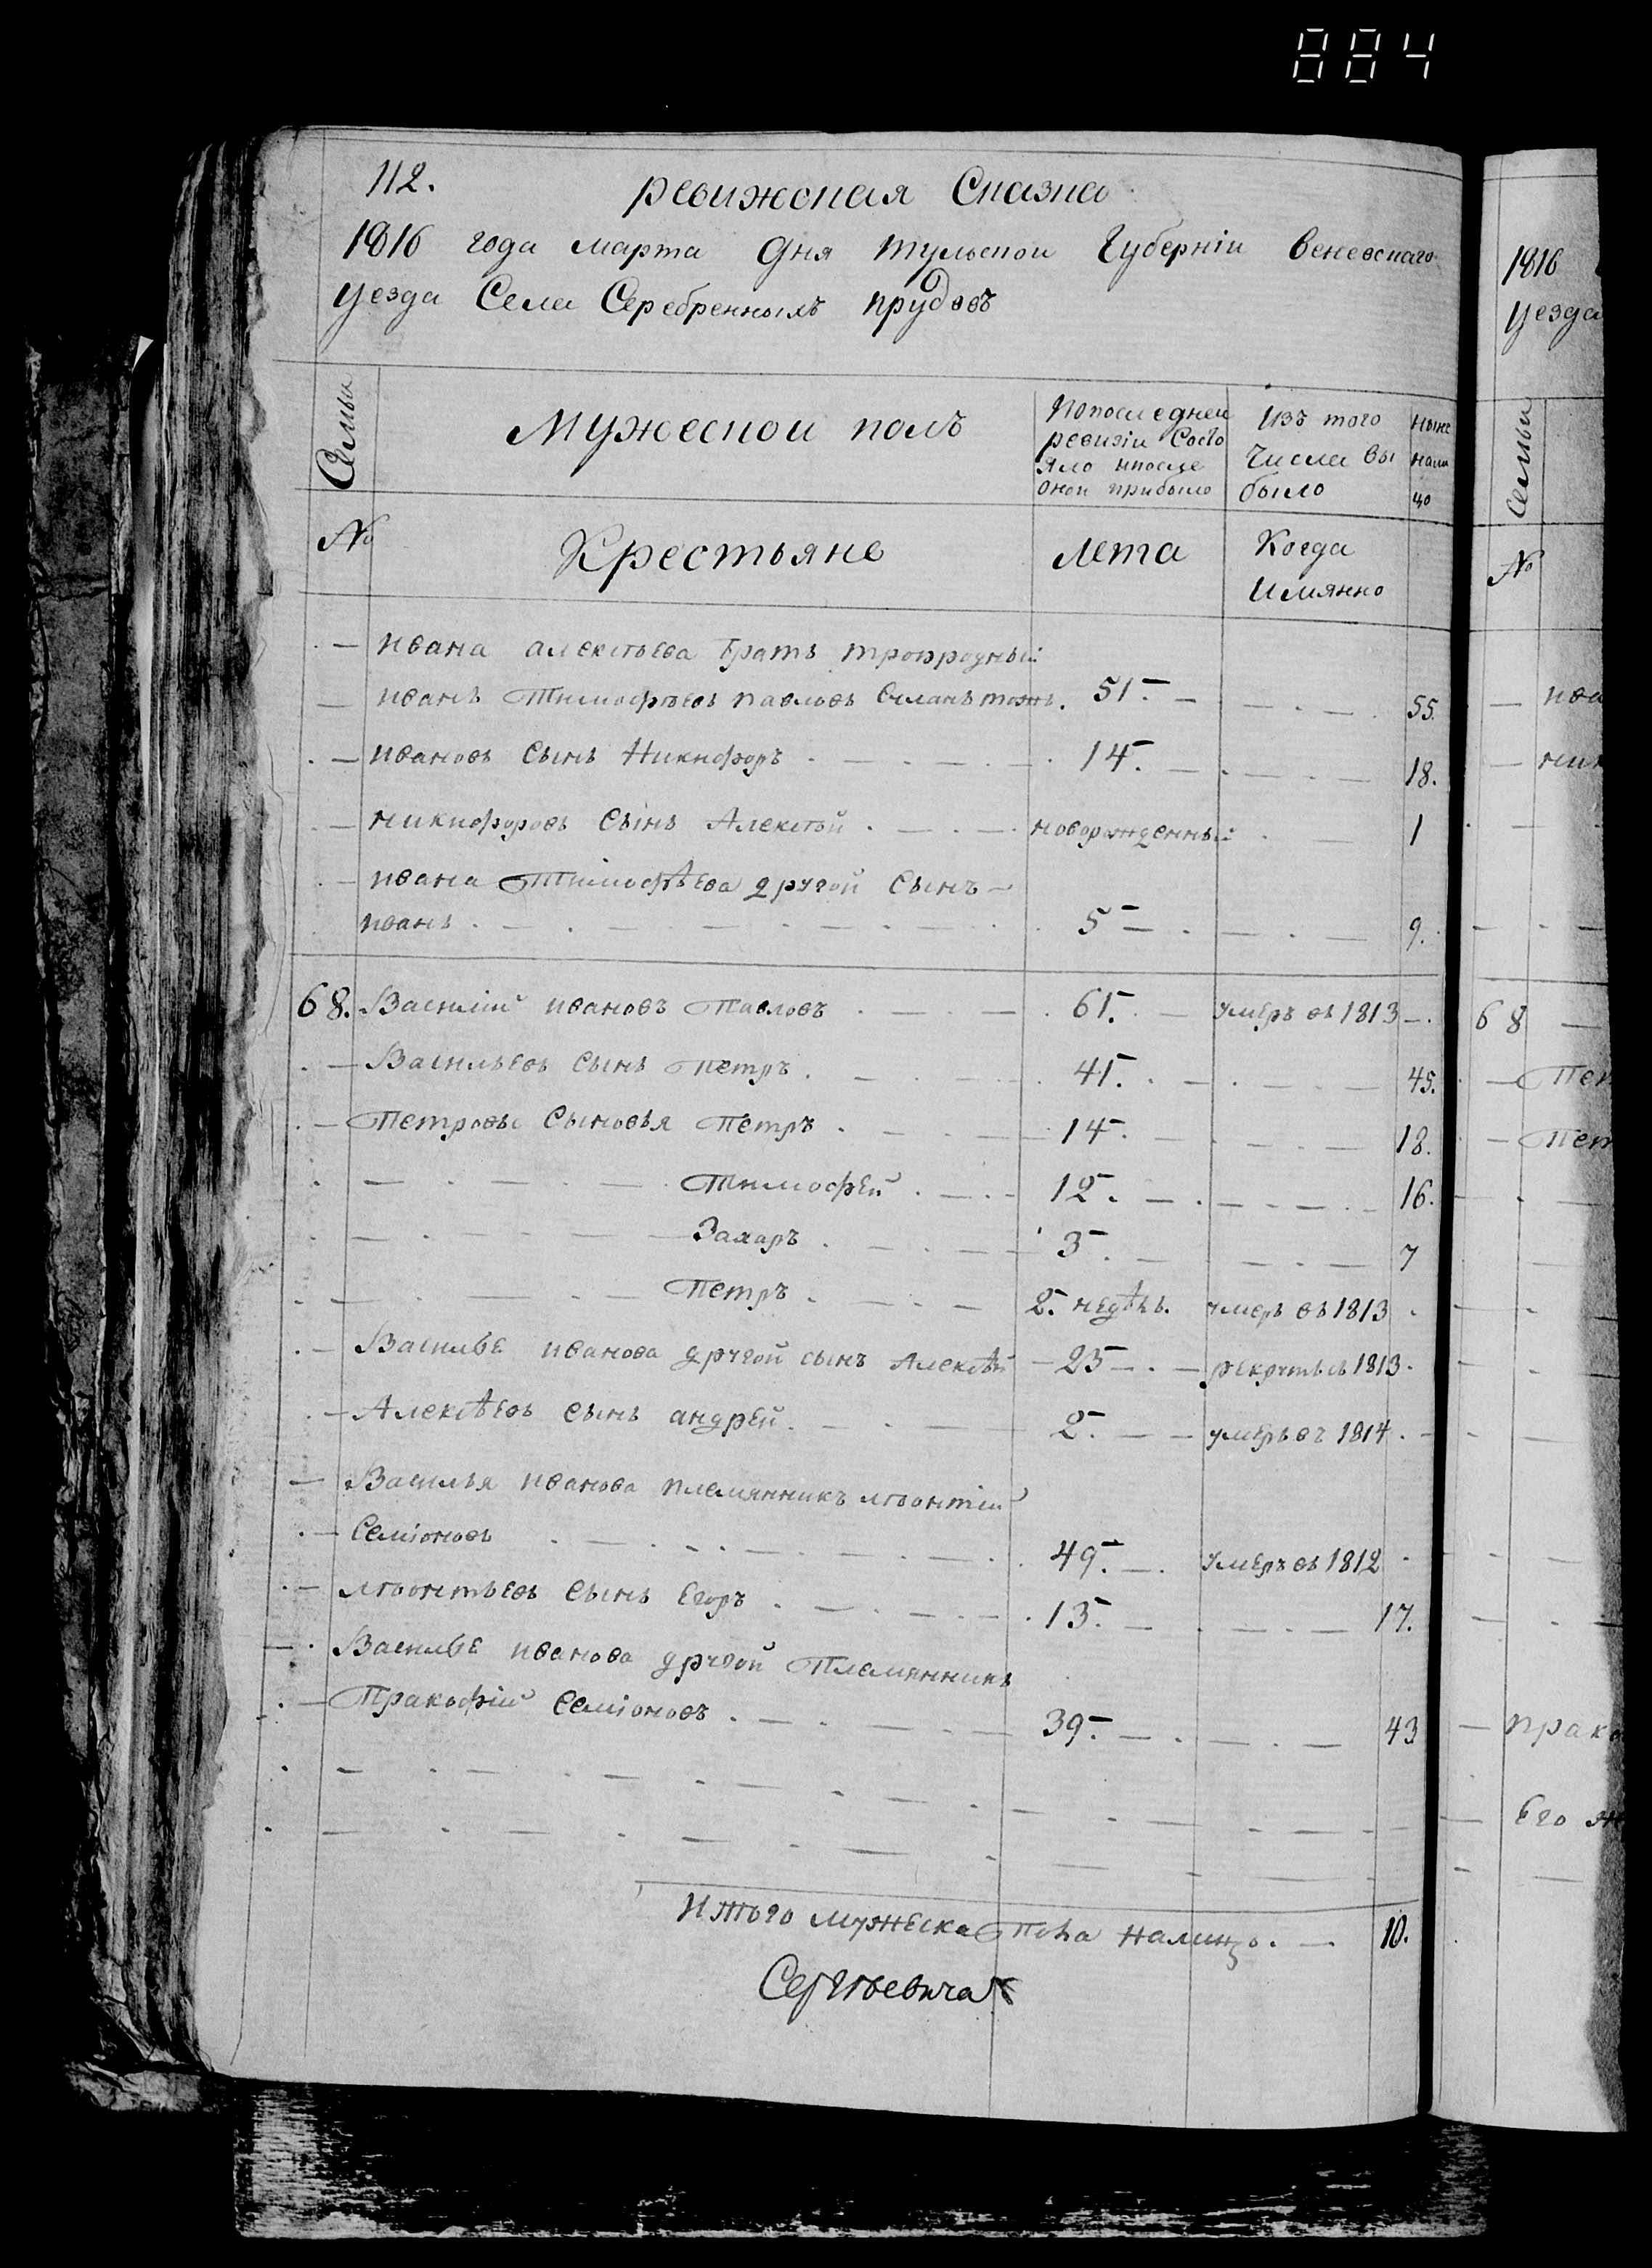 884
112. ревижская Сказка
1816 года марта дня тульской Губернiи веневскаго
уезда Села Серебренныхъ прудовъ
Семьи
Мужескои полъ
Попоследнеи
ревизiи Состо
яло ипосле
оной прибыло
Изъ того
Числа вы
было
ныне
нали
цо
№ Крестьяне Лета Когда
Имянно
ивана алексѣева братъ троюродный
иванъ Тимофѣевъ павловъ 51. 55.
ивановъ сынъ Никифоръ 14. 18.
никифоровъ сынъ Алексѣй новорожденный 1
ивана Тимофѣева другой сынъ
иванъ 5 9.
68. Василiй ивановъ Павловъ 61. умеръ въ 1813
Васильевъ сынъ Петръ 41. 45.
Петровы сыновья Петръ 14. 18.
Тимофей 12. 16.
Захаръ 3. 7
Петръ 2. недѣль. умеръ въ 1813
Василье иванова другой сынъ Алексѣй 25 рекрутъ въ 1813.
Алексѣевъ сынъ андрей 2. умеръ въ 1814.
Василья иванова племянникъ лѣонтiй
Семiоновъ 49. умеръ въ 1812
лѣонтьевъ сынъ Егоръ 13. 17.
Василье иванова другой Племянникъ
Пракофiй Семiоновъ 39. 43
Итого мужеска пола налицо. 10.
Сергѣевича
1816
уезда
Семьи
№
68
Пет
Пет
прако
Его